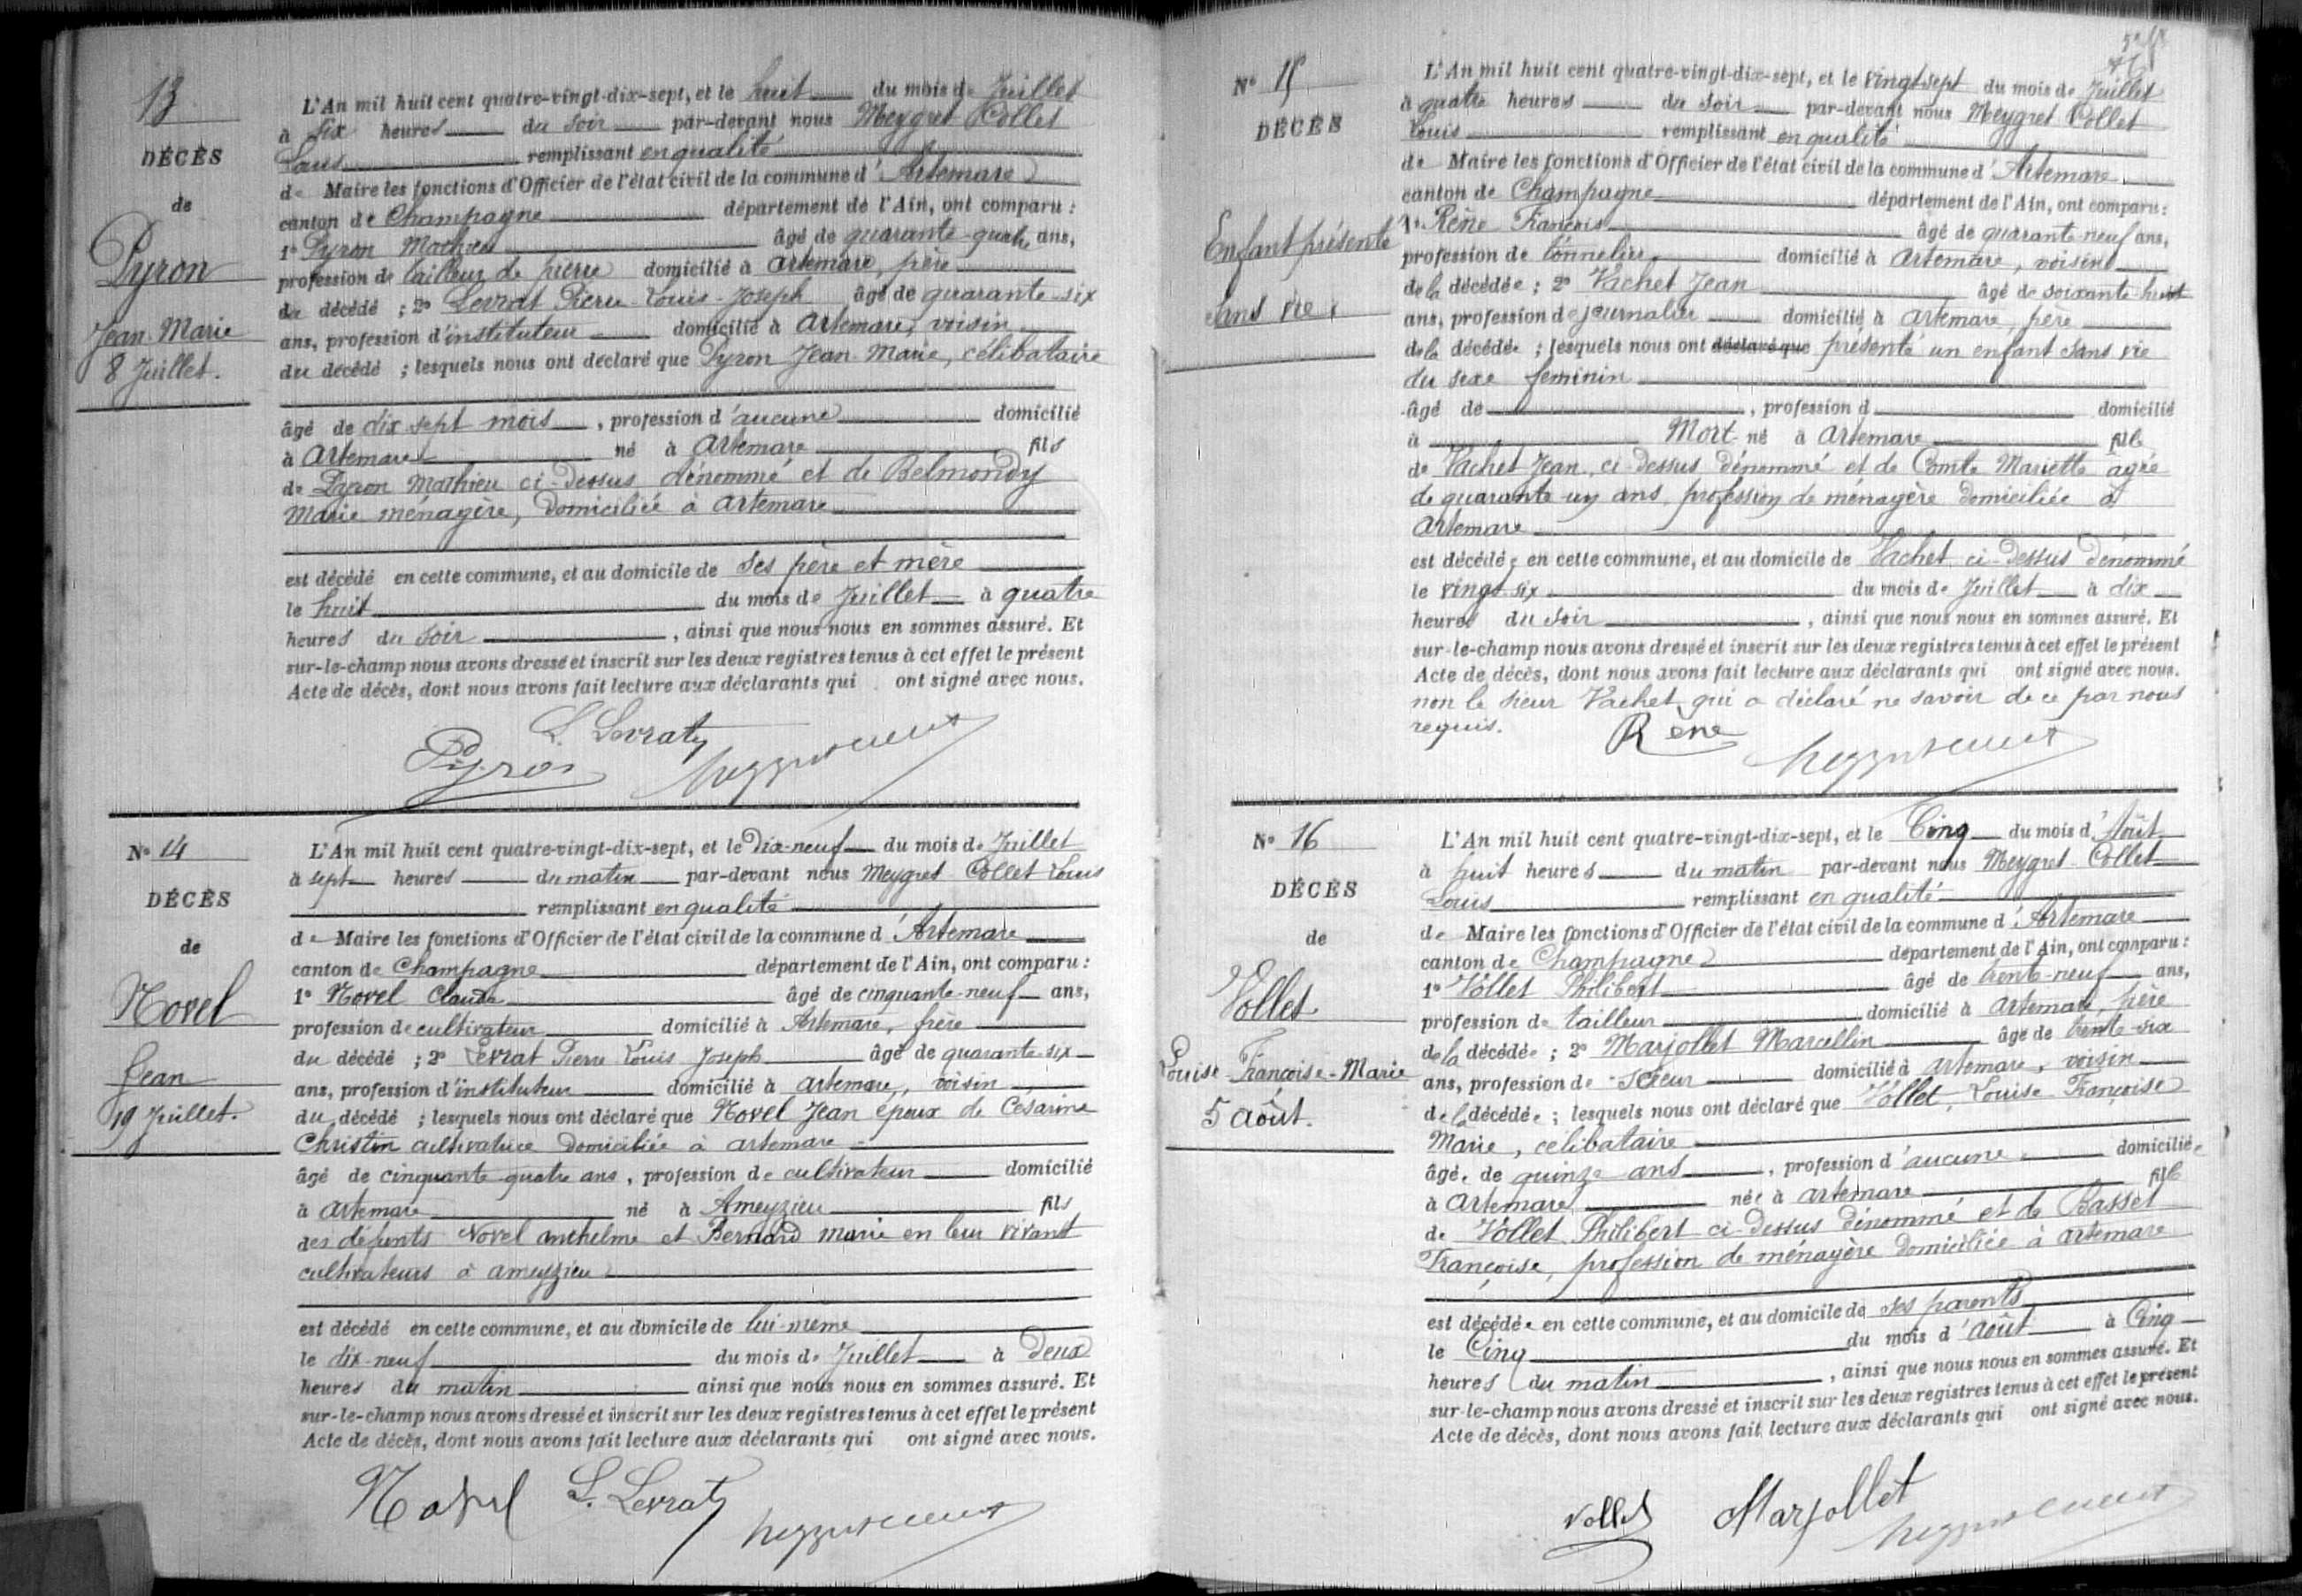 13
DÉCÈS
de
Pyron
Jean-Marie
8 Juillet.
L'An mil huit cent quatre-vingt-dix-sept, et le huit du mois de Juillet
à six heures du soir par-devant nous Meygret Collet
Louis remplissant en qualité
de Maire les fonctions d'Officier de l'état civil de la commune d'Artemare
canton de Champagne département de l'Ain, ont comparu :
1° Pyron Mathieu âgé de quarante-quatre ans,
profession de tailleur de pierre domicilié à Artemare, père
du décédé ; 2° Levrat Pierre-Louis-Joseph âgé de quarante-six
ans, profession d'instituteur domicilié à Artemare, voisin
du décédé ; lesquels nous ont déclaré que Pyron Jean-Marie, célibataire
âgé de dix sept mois, profession d'aucune domicilié
à Artemare né à Artemare fils
de Pyron Mathieu ci-dessus dénommé et de Belmondy
Marie ménagère, domiciliée à Artemare
est décédé en cette commune, et au domicile de ses père et mère
le huit du mois de Juillet à quatre
heures du soir, ainsi que nous nous en sommes assuré. Et
sur-le-champ nous avons dressé et inscrit sur les deux registres tenus à cet effet le présent
Acte de décès, dont nous avons fait lecture aux déclarants qui ont signé avec nous.
L. Levrat
Pyron
N° 14
DÉCÈS
de
Novel
Jean
19 Juillet.
L'An mil huit cent quatre-vingt-dix-sept, et le Dix-neuf du mois de Juillet
à sept heures du matin par-devant nous Meygret Collet Louis
remplissant en qualité
de Maire les fonctions d'Officier de l'état civil de la commune d'Artemare
canton de Champagne département de l'Ain, ont comparu :
1° Novel Claude âgé de cinquante-neuf ans,
profession de cultivateur domicilié à Artemare, frère
du décédé ; 2° Levrat Pierre Louis Joseph âgé de quarante-six
ans, profession d'instituteur domicilié à Artemare, voisin
du décédé ; lesquels nous ont déclaré que Novel Jean époux de Césarine
Christin cultivatrice domiciliée à artemare
âgé de cinquante quatre ans, profession de cultivateur domicilié
à Artemare né à Ameyzieu fils
des défunts Novel anthelme et Bernard marie en leur vivant
cultivateurs à ameyzieu
est décédé en cette commune, et au domicile de lui-même
le dix-neuf du mois de Juillet à Deux
heures du matin ainsi que nous nous en sommes assuré. Et
sur-le-champ nous avons dressé et inscrit sur les deux registres tenus à cet effet le présent
Acte de décès, dont nous avons fait lecture aux déclarants qui ont signé avec nous.
Novel L. Levrat
N° 15
DÉCÈS
Enfant présenté
sans vie.
L'An mil huit cent quatre-vingt-dix-sept, et le vingt-sept du mois de Juillet
à quatre heures du soir par-devant nous Meygret Collet
Louis remplissant en qualité
de Maire les fonctions d'Officier de l'état civil de la commune d'Artemare
canton de Champagne département de l'Ain, ont comparu :
1° Rène François âgé de quarante-neuf ans,
profession de tonnelier domicilié à Artemare, voisin
de la décédée ; 2° Vachet Jean âgé de soixante-huit
ans, profession de journalier domicilié à artemare, père
de la décédée ; lesquels nous ont déclaré que présenté un enfant sans vie
du sexe féminin
âgé de , profession d domicilié
à Mort-né à Artemare fille
de Vachet Jean, ci-dessus dénommé et de Comte Mariette âgée
de quarante-un ans, profession de ménagère domiciliée à
Artemare
est décédée en cette commune, et au domicile de Vachet ci-dessus dénommé
le vingt-six du mois de Juillet à dix
heures du soir, ainsi que nous nous en sommes assuré. Et
sur-le-champ nous avons dressé et inscrit sur les deux registres tenus à cet effet le présent
Acte de décès, dont nous avons fait lecture aux déclarants qui ont signé avec nous.
non le sieur Vachet qui a déclaré ne savoir de ce par nous
requis.
Rène
N° 16
DÉCÈS
de
Vollet
Louise-Françoise-Marie
5 Août.
L'An mil huit cent quatre-vingt-dix-sept, et le Cinq du mois d'Août
à huit heures du matin par-devant nous Meygret-Collet
Louis remplissant en qualité
de Maire les fonctions d'Officier de l'état civil de la commune d'Artemare
canton de Champagne département de l'Ain, ont comparu :
1° Vollet Philibert âgé de trente-neuf ans,
profession de tailleur domicilié à Artemare, père
de la décédée ; 2° Marjollet Marcellin âgé de trente-six
ans, profession de scieur domicilié à artemare, voisin
de la décédée ; lesquels nous ont déclaré que Vollet, Louise Françoise
Marie, célibataire
âgée de quinze ans, profession d'aucune domiciliée
à Artemare née à artemare fille
de Vollet Philibert ci-dessus dénommé et de Basset
Françoise, profession de ménagère domiciliée à artemare
est décédée en cette commune, et au domicile de ses parents
le Cinq du mois d'Août à Cinq
heures du matin, ainsi que nous nous en sommes assuré. Et
sur-le-champ nous avons dressé et inscrit sur les deux registres tenus à cet effet le présent
Acte de décès, dont nous avons fait lecture aux déclarants qui ont signé avec nous.
Vollet Marjollet